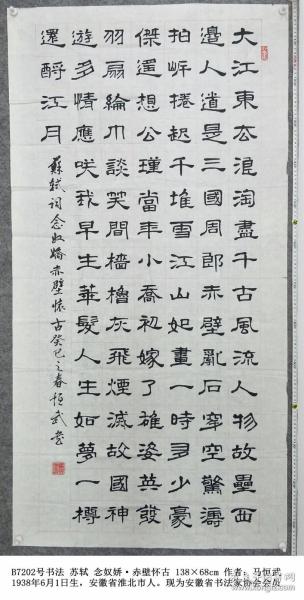 大江東去浪淘盡千古風流人物故壘西
邊人道是三國周郎赤壁亂石穿空驚濤
拍岍捲起千堆雪江山如畫一時多少豪
傑遥想公瑾當年小喬初嫁了雄姿英發
羽扇綸巾談笑間檣櫓灰飛煙滅故國神
遊多情應咲我早生華髮人生如夢一樽
還酹江月
蘇軾詞念奴嬌赤壁懷古癸巳之春恒武書
B7202号书法 苏轼 念奴娇·赤壁怀古 138×68cm 作者：马恒武
1938年6月1日生，安徽省淮北市人。现为安徽省书法家协会会员